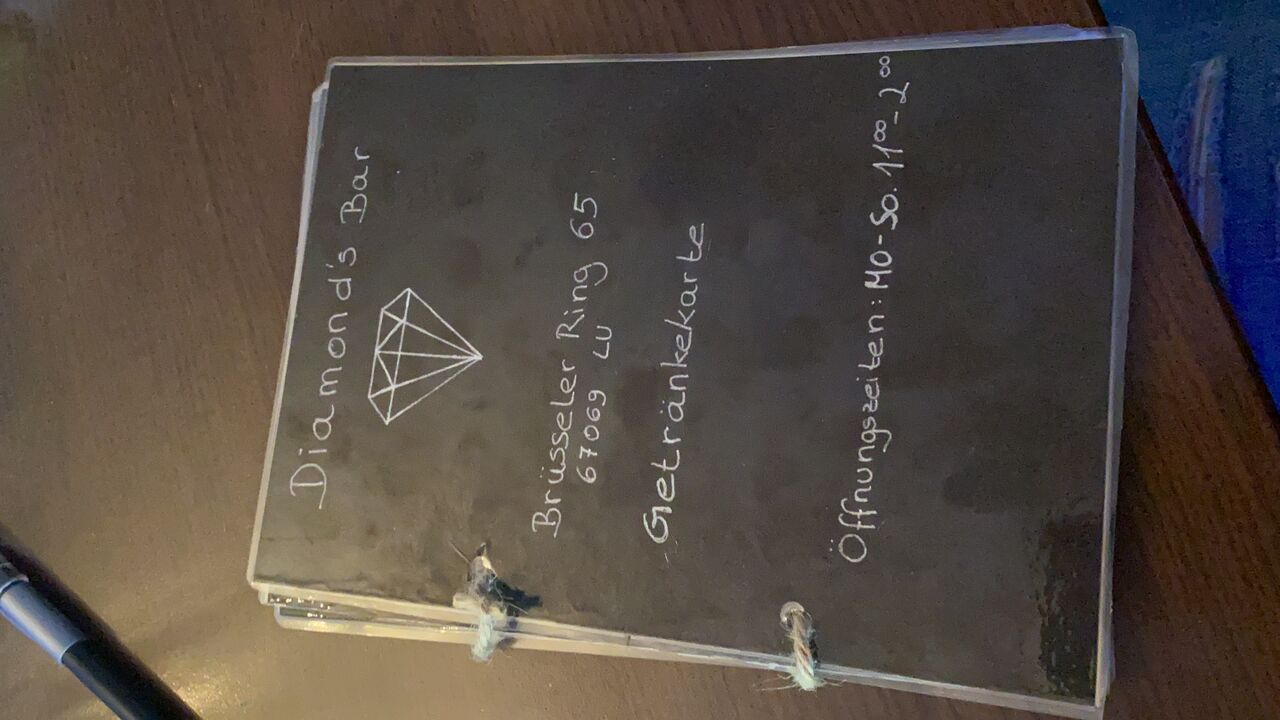 Diamond's Bar
Brüsseler Ring 65
67069 LU
Getränkekarte
Öffnungszeiten: Mo-So. 11⁰⁰-2⁰⁰